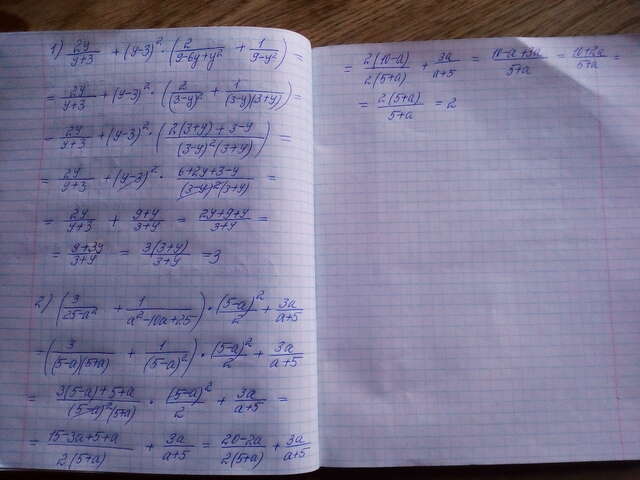 1) 2y/(y+3) + (y-3)² · (2/(9-6y+y²) + 1/(9-y²)) =
= 2y/(y+3) + (y-3)² · (2/(3-y)² + 1/((3-y)(3+y))) =
= 2y/(y+3) + (y-3)² · ((2(3+y)+3-y)/((3-y)²(3+y))) =
= 2y/(y+3) + (y-3)² · (6+2y+3-y)/((3-y)²(3+y)) =
= 2y/(y+3) + (9+y)/(3+y) = (2y+9+y)/(3+y) =
= (9+3y)/(3+y) = 3(3+y)/(3+y) = 3
2) (3/(25-a²) + 1/(a²-10a+25)) · (5-a)²/2 + 3a/(a+5)
= (3/((5-a)(5+a)) + 1/(5-a)²) · (5-a)²/2 + 3a/(a+5)
= (3(5-a)+5+a)/((5-a)²(5+a)) · (5-a)²/2 + 3a/(a+5) =
= (15-3a+5+a)/(2(5+a)) + 3a/(a+5) = (20-2a)/(2(5+a)) + 3a/(a+5)
= 2(10-a)/(2(5+a)) + 3a/(a+5) = (10-a+3a)/(5+a) = (10+2a)/(5+a) =
= 2(5+a)/(5+a) = 2